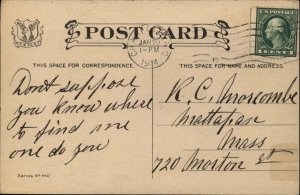 POST CARD
THIS SPACE FOR CORRESPONDENCE
THIS SPACE FOR NAME AND ADDRESS
JAN
1-PM
1914
1 CENT 1
Don't suppose
you know where
to find me
one do you
R. C. Morcombe
Mattapan
Mass
720 Morton St
Series No 940